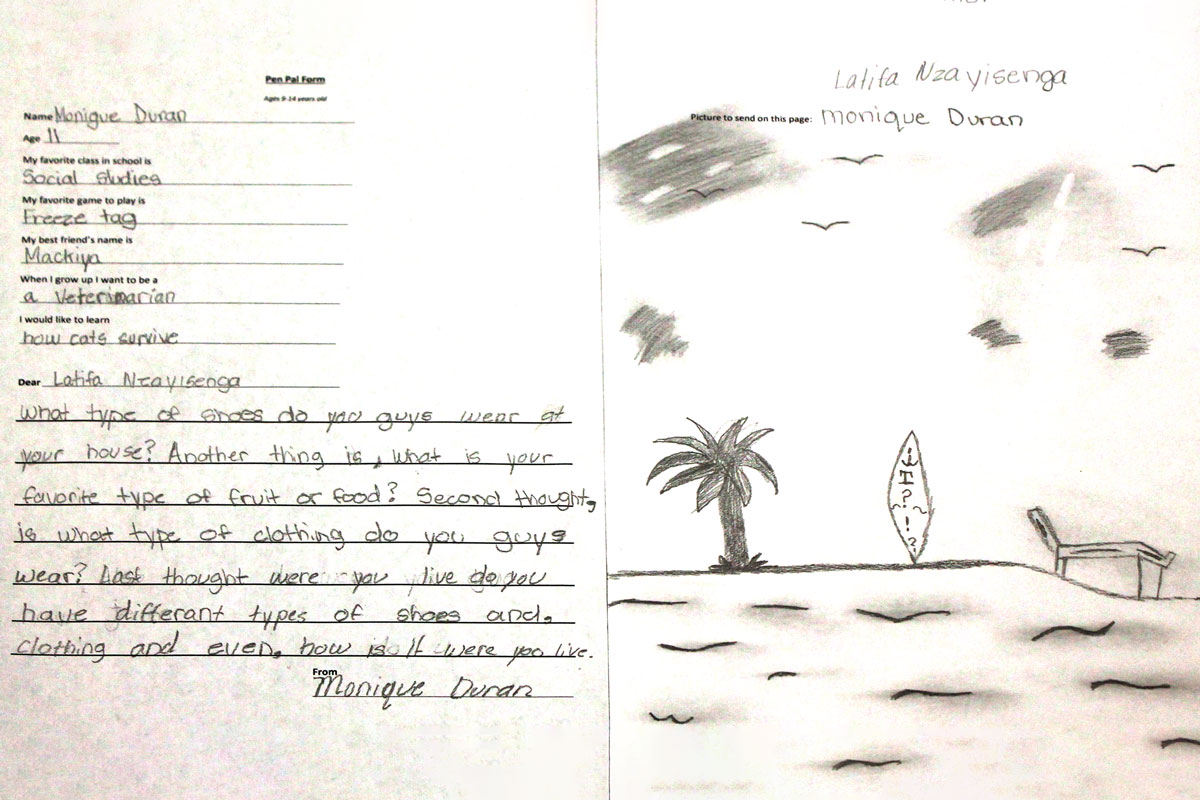 Pen Pal Form
Ages 9-14 years old
Name Monique Duran
Age 11
My favorite class in school is
Social studies
My favorite game to play is
Freeze tag
My best friend's name is
Mackiya
When I grow up I want to be a
a Veterinarian
I would like to learn
how cats survive
Dear Latifa Nzayisenga
What type of shoes do you guys wear at
your house? Another thing is, what is your
favorite type of fruit or food? Second thought,
is what type of clothing do you guys
wear? Last thought were you live do you
have differant types of shoes and,
clothing and even, how is it were you live.
From
Monique Duran
Latifa Nzayisenga
Picture to send on this page: Monique Duran